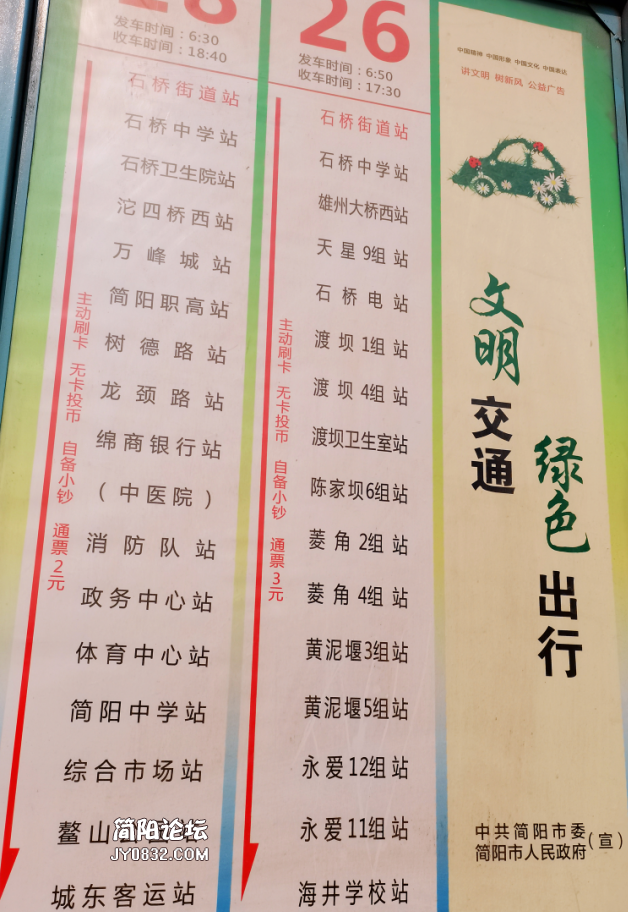 发车时间：6:30
收车时间：18:40
石桥街道站
石桥中学站
石桥卫生院站
沱四桥西站
万峰城站
简阳职高站
树德路站
龙颈路站
绵商银行站
（中医院）
消防队站
政务中心站
体育中心站
简阳中学站
综合市场站
鳌山
城东客运站
主动刷卡 无卡投币 自备小钞 通票2元
26
发车时间：6:50
收车时间：17:30
石桥街道站
石桥中学站
雄州大桥西站
天星9组站
石桥电站
渡坝1组站
渡坝4组站
渡坝卫生室站
陈家坝6组站
菱角2组站
菱角4组站
黄泥堰3组站
黄泥堰5组站
永爱12组站
永爱11组站
海井学校站
主动刷卡 无卡投币 自备小钞 通票3元
中国精神 中国形象 中国文化 中国表达
讲文明 树新风 公益广告
文明交通
绿色出行
中共简阳市委
简阳市人民政府
（宣）
简阳论坛
JY0832.COM